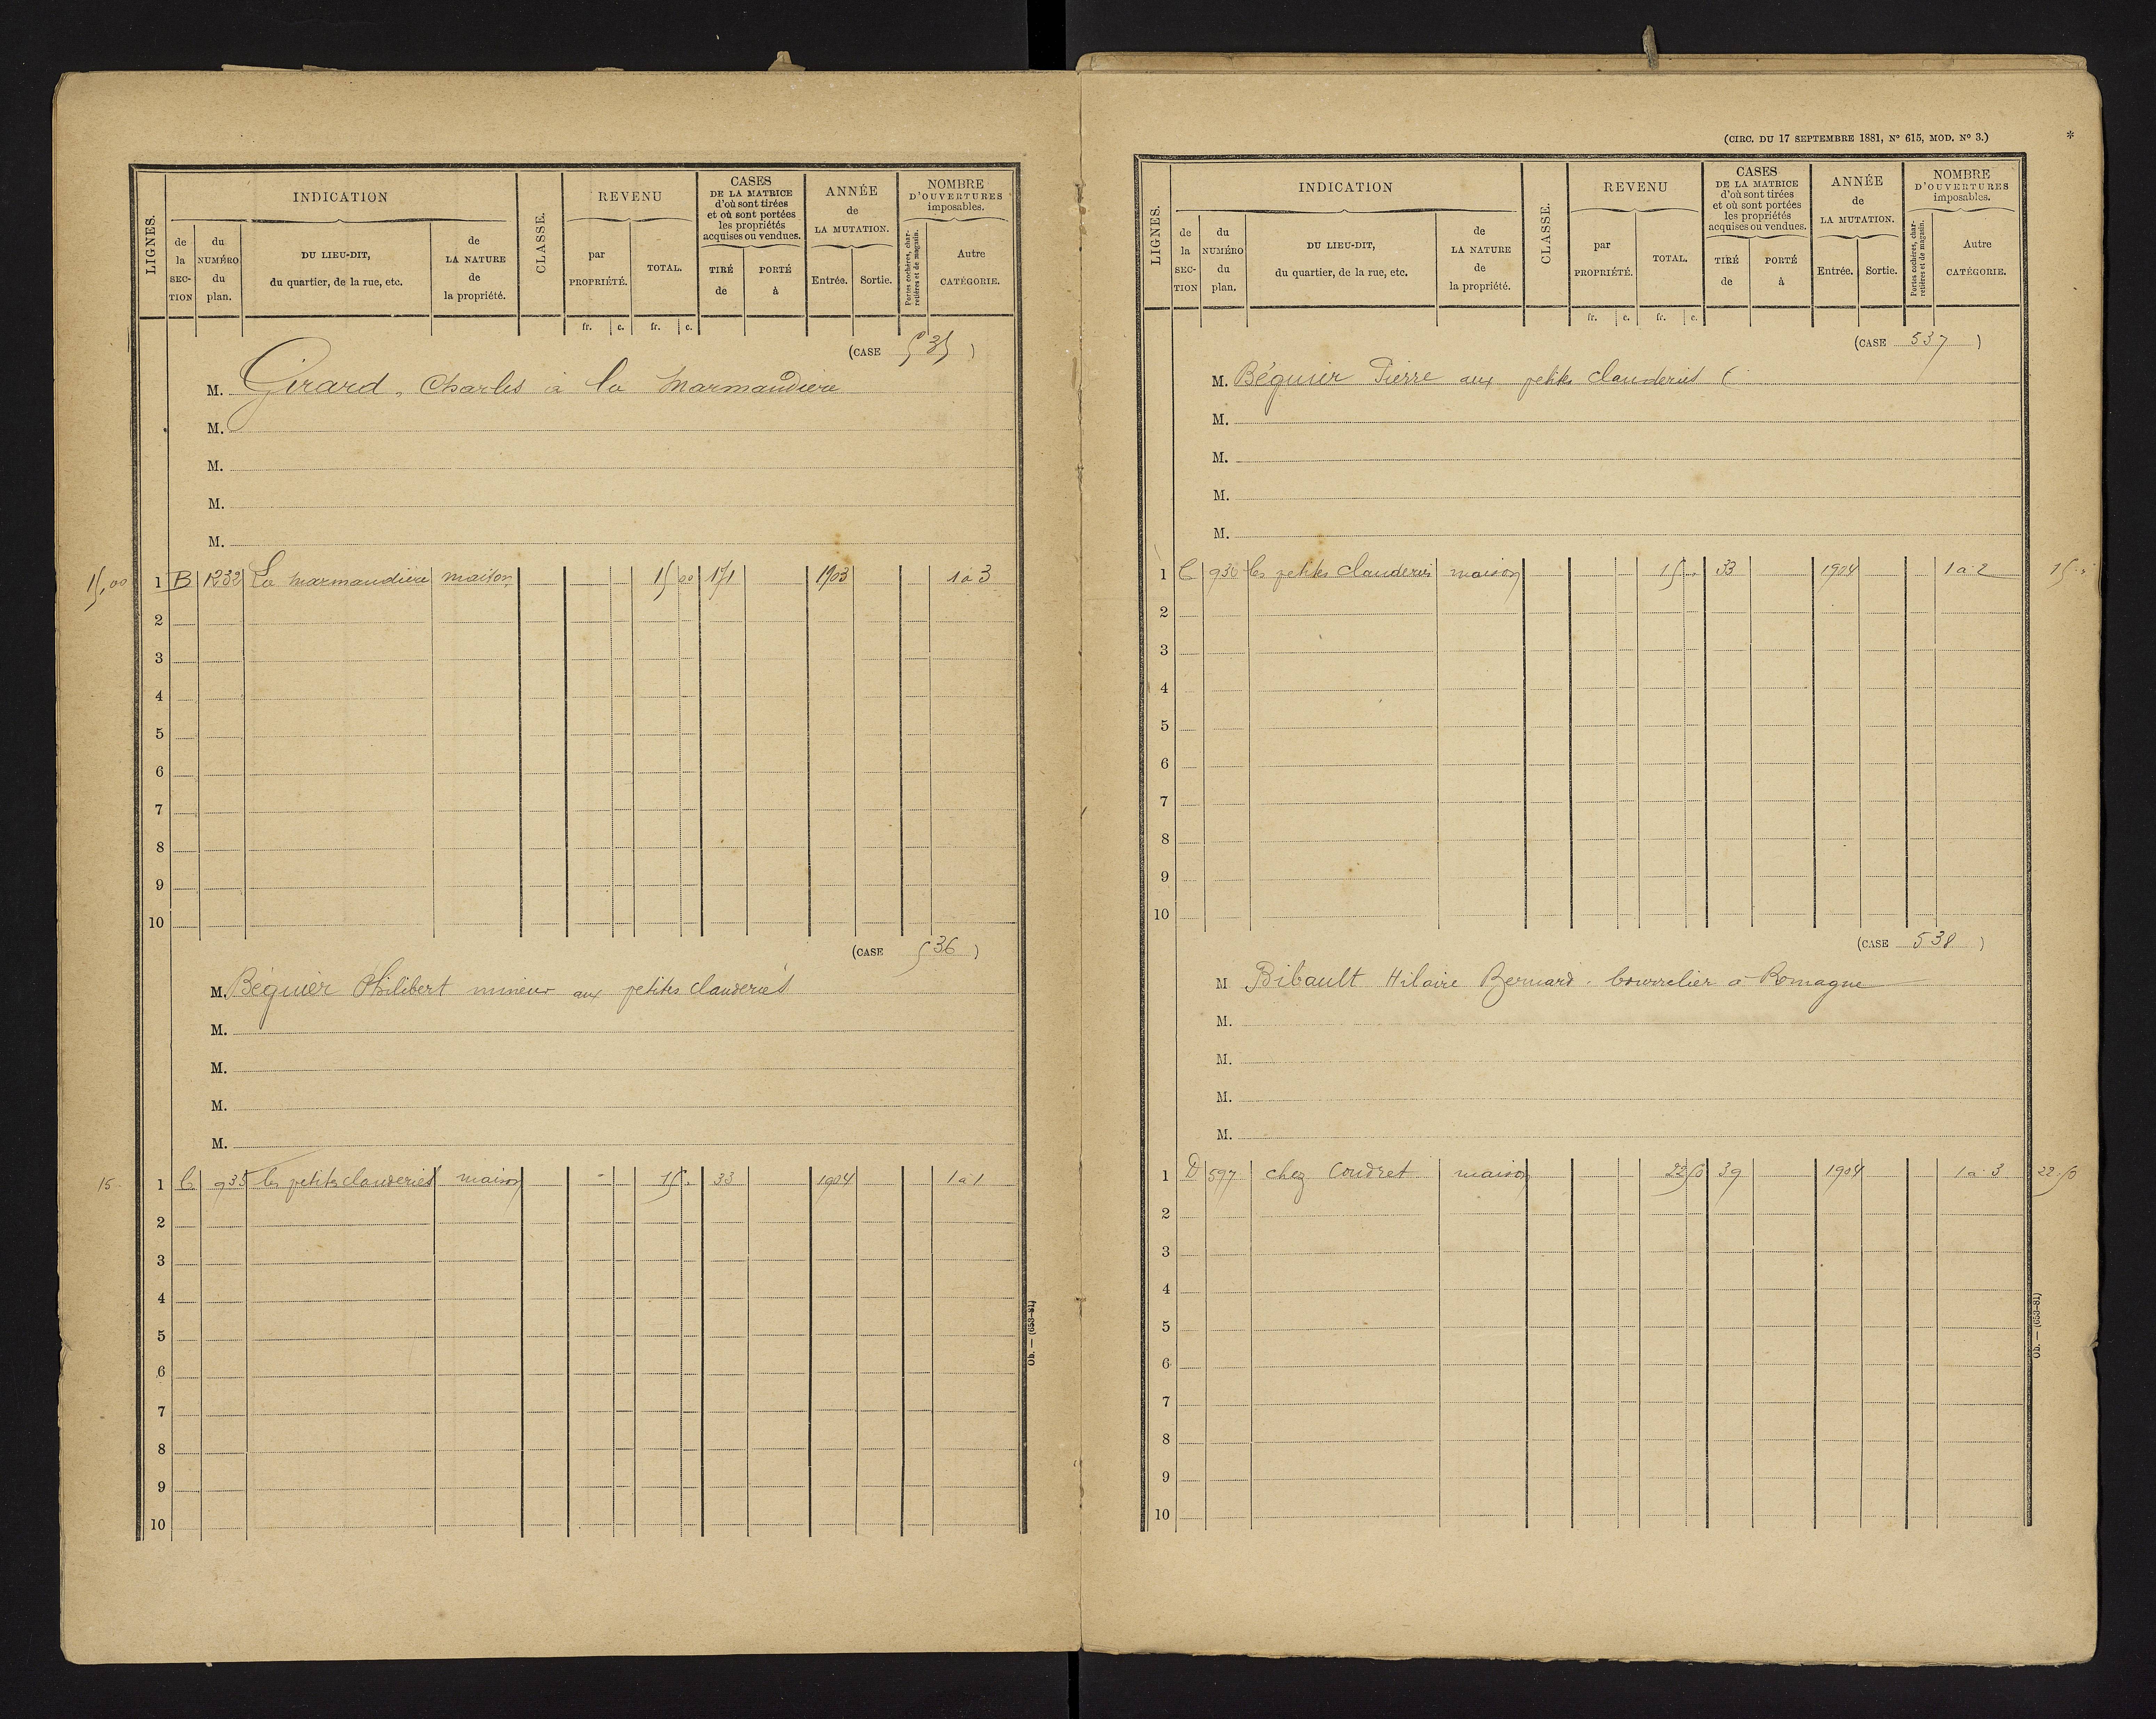 LIGNES.
INDICATION
de la SECTION
du NUMÉRO du plan.
DU LIEU-DIT, du quartier, de la rue, etc.
de LA NATURE de la propriété.
CLASSE.
REVENU
par PROPRIÉTÉ.
TOTAL.
CASES DE LA MATRICE d'où sont tirées et où sont portées les propriétés acquises ou vendues.
TIRÉ de
PORTÉ à
ANNÉE de LA MUTATION.
Entrée.
Sortie.
NOMBRE D'OUVERTURES imposables.
Portes cochères, charretières et de magasin.
Autre CATÉGORIE.
fr. c. fr. c.
(CASE 535)
M. Girard, Charles à la Marmandiere
M.
M.
M.
M.
15,00 1 B 1232 La marmandiere maison 15 00 171 1903 1 à 3
2
3
4
5
6
7
8
9
10
(CASE 536)
M. Béguier Philibert mineur aux petites clauderies
M.
M.
M.
M.
15 - 1 C 935 les petites clauderies maison 15 . 33 1904 1 à 1
2
3
4
5
6
7
8
9
10
Ob. — (653-81)
(CIRC. DU 17 SEPTEMBRE 1881, N° 615, MOD. N° 3.)
*
LIGNES.
INDICATION
de la SECTION
du NUMÉRO du plan.
DU LIEU-DIT, du quartier, de la rue, etc.
de LA NATURE de la propriété.
CLASSE.
REVENU
par PROPRIÉTÉ.
TOTAL.
CASES DE LA MATRICE d'où sont tirées et où sont portées les propriétés acquises ou vendues.
TIRÉ de
PORTÉ à
ANNÉE de LA MUTATION.
Entrée.
Sortie.
NOMBRE D'OUVERTURES imposables.
Portes cochères, charretières et de magasin.
Autre CATÉGORIE.
fr. c. fr. c.
(CASE 537)
M. Béguier Pierre aux petites clauderies
M.
M.
M.
M.
1 C 936 les petites clauderies maison 15 . 33 1904 1 à 2 15 .
2
3
4
5
6
7
8
9
10
(CASE 538)
M Bibault Hilaire Bernard . bourrelier à Romagne
M.
M.
M.
M.
1 D 597 chez Coudret maison 22 50 39 1904 1 à 3 22.50
2
3
4
5
6
7
8
9
10
Ob. — (653-81)